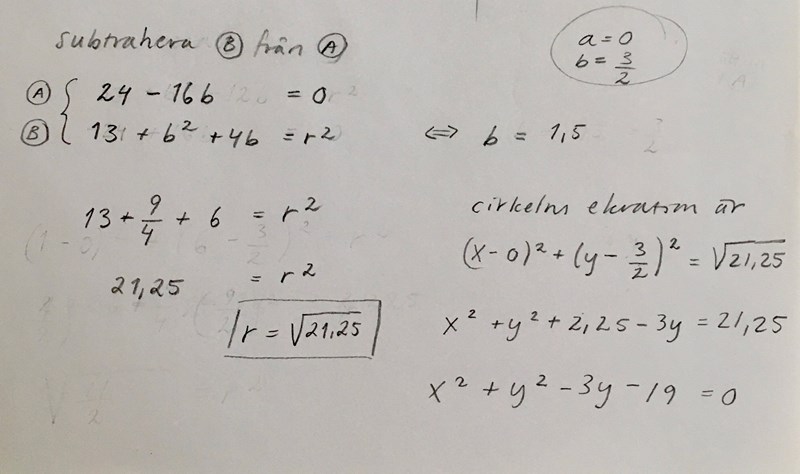 subtrahera Ⓑ från Ⓐ
a = 0
b = 3/2
Ⓐ { 24 - 16b = 0
Ⓑ { 13 + b² + 4b = r²
⇔ b = 1,5
13 + 9/4 + 6 = r²
21,25 = r²
r = √21,25
cirkelns ekvation är
(x-0)² + (y - 3/2)² = √21,25
x² + y² + 2,25 - 3y = 21,25
x² + y² - 3y - 19 = 0